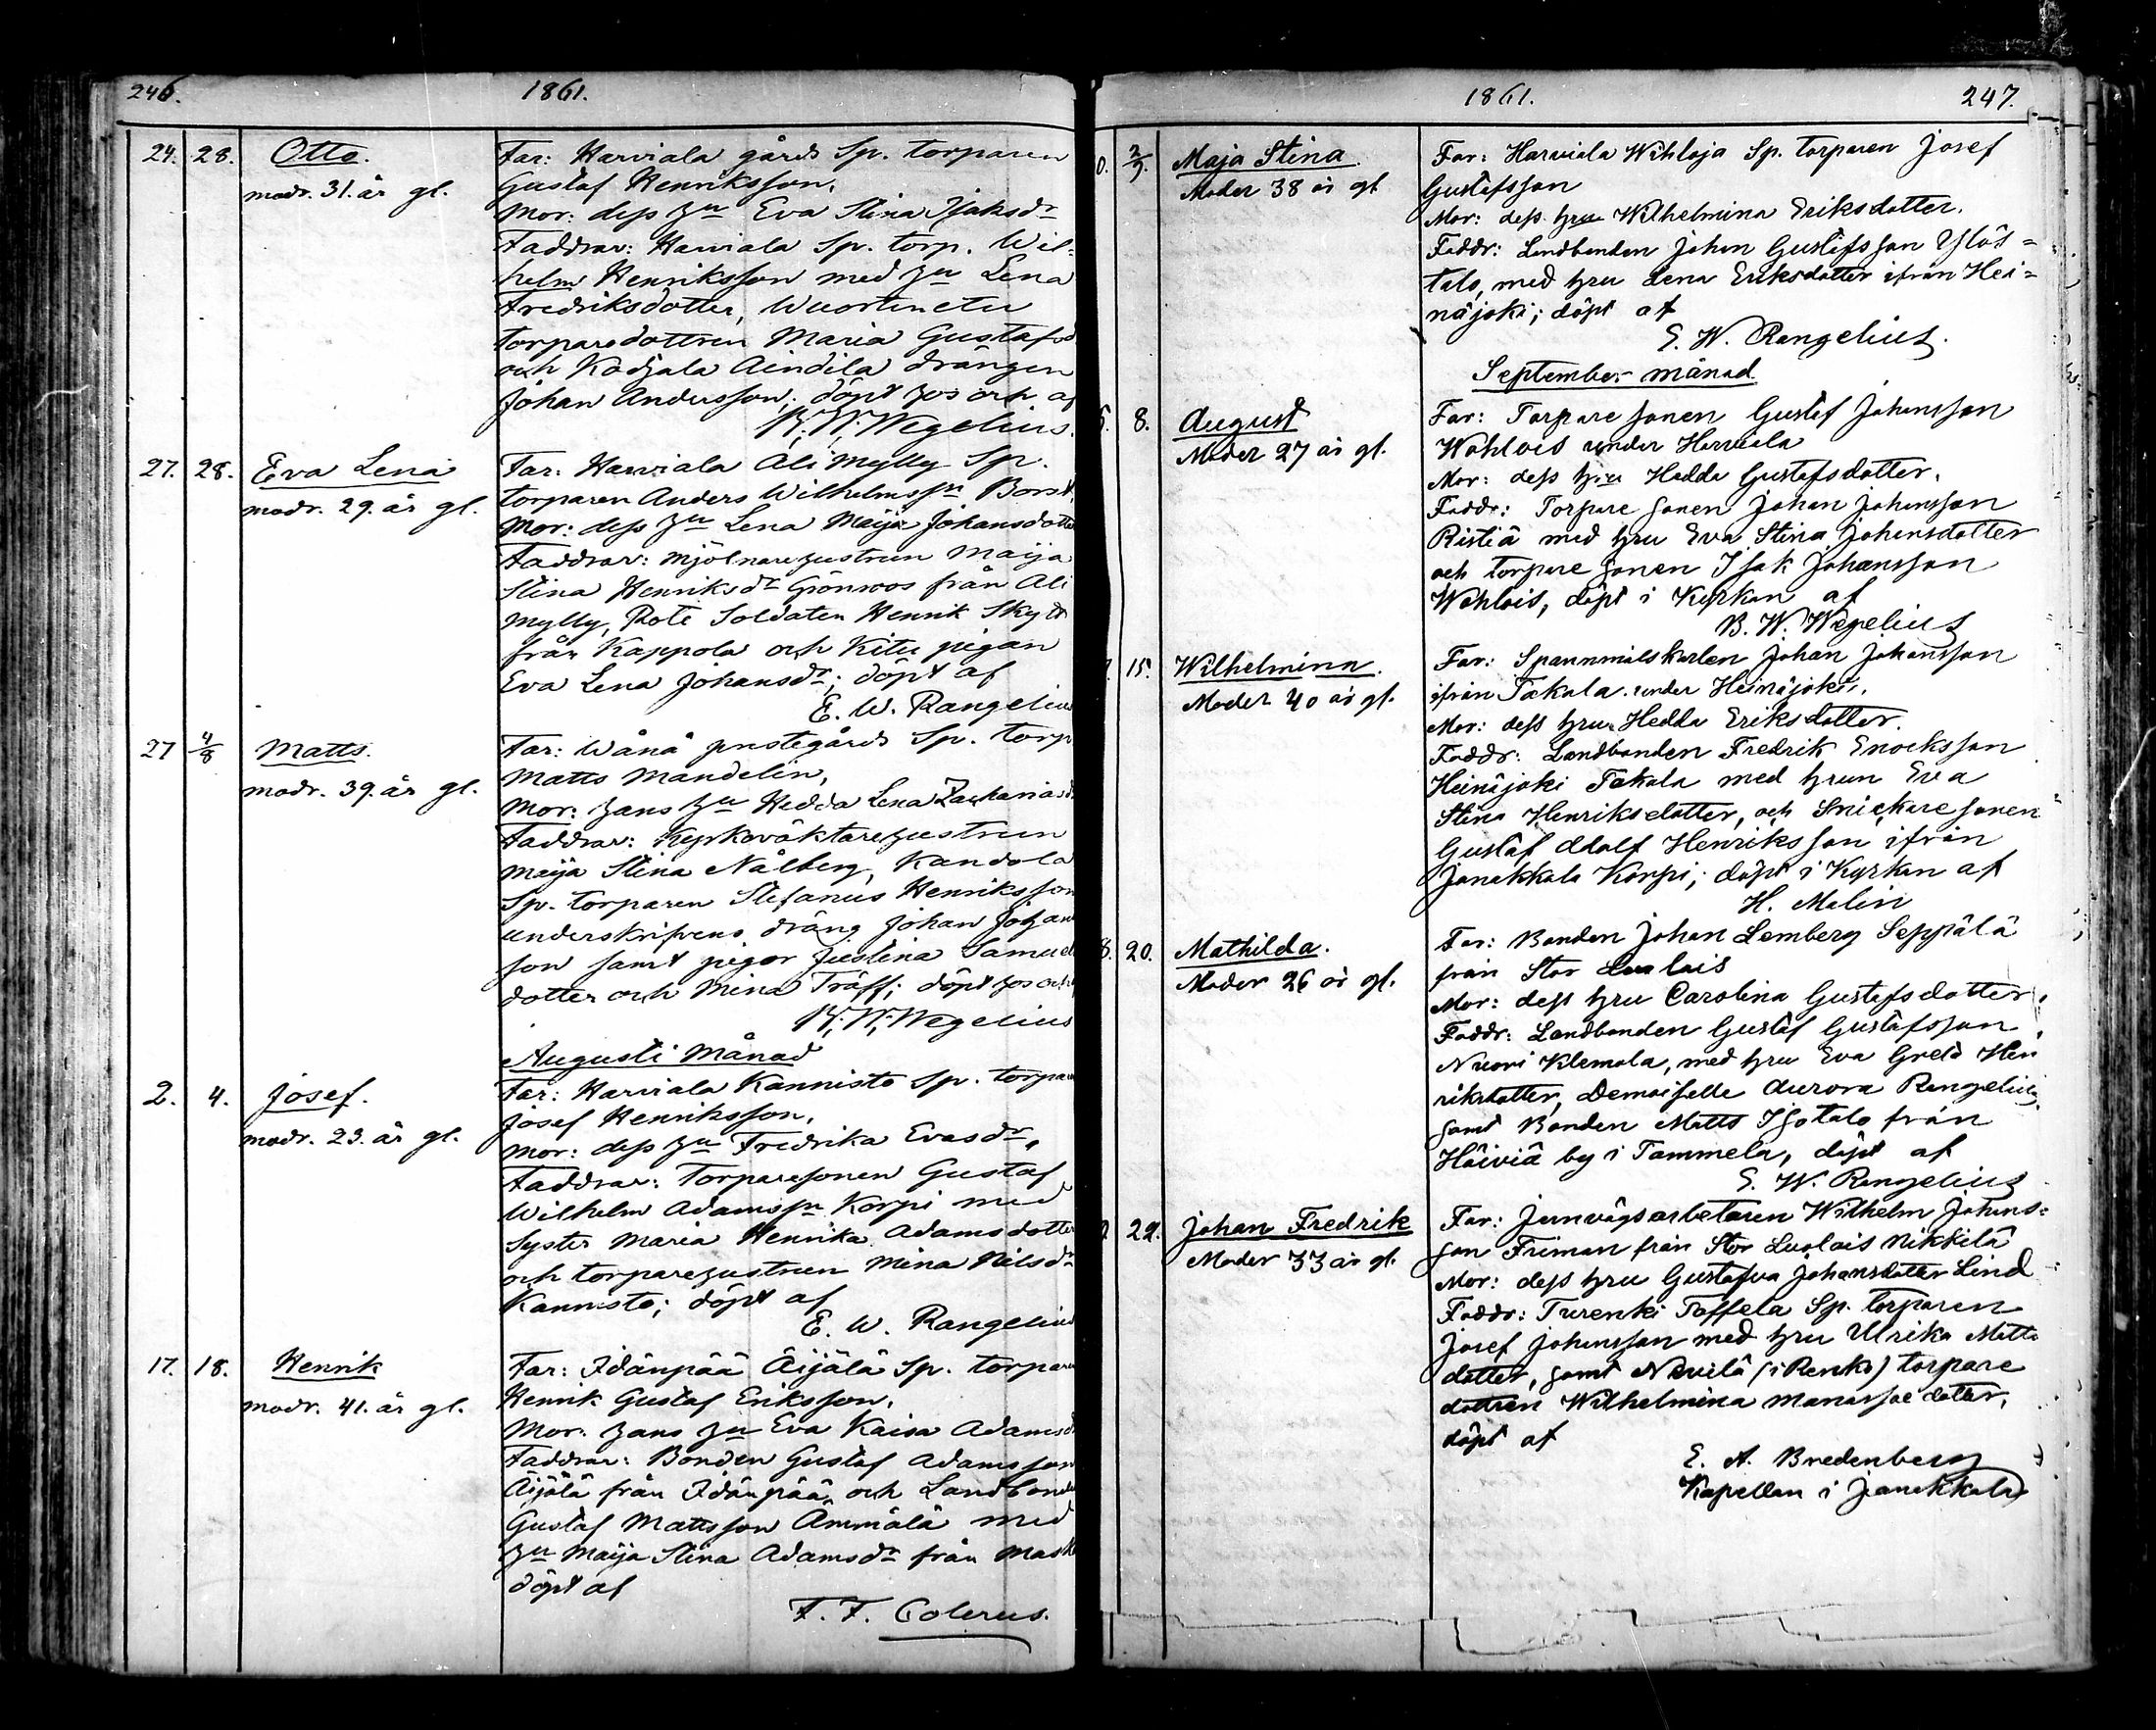 246. 1861.
24. 28. Otto. Far: Harviala gårds Sp. torparen
modr. 31. år gl. Gustaf Henriksson,
Mor: dess hu Eva Stina Isaksdr
Faddrar: Harviala Sp. torp. Wil=
helm Henriksson med hu Lena
Fredriksdotter, Wuortenetu
torparedottren Maria Gustafsd
och Kådjala Aindila drängen
Johan Andersson; döpt hos och af
B. W. Wegelius.
27. 28. Eva Lena Far: Harviala Alimylly Sp.
modr. 29. år gl. torparen Anders Wilhelmssn Borst,
Mor: dess hu Lena Maija Johansdotter
Faddrar: Mjölnarehustrun Maija
Stina Henriksdr Grönroos från Ali
mylly, Rote Soldaten Henrik Skytt
från Kappola och Kitu pigan
Eva Lena Johansdr; döpt af
E. W. Rangelius
27 4/8 Matts. Far: Wånå prestegårds Sp. torp
modr. 39. år gl. Matts Mandelin,
Mor: hans hu Hedda Lena Zachariasd
Faddrar: Kyrkoväktarehustrun
Maija Stina Nålberg, Kandola
Sp. torparen Stefanus Henriksson
underskrifvens dräng Johan Johan
son samt pigor Justina Samuels
dotter och Mina Träff; döpt hos och
B. W. Wegelius
Augusti Månad
2. 4. Josef. Far: Harviala Kannisto Sp. torpare
modr. 23. år gl. Josef Henriksson,
Mor: dess hu Fredrika Evasdr,
Faddrar: Torparesonen Gustaf
Wilhelm Adamssn Korpi med
Syster Maria Henrika Adamsdotter
och torparehustrun Mina Nilsdr
Kannisto; döpt af
E. W. Rangelius
17. 18. Henrik Far: Idänpää Äijälä Sp. torpare
modr. 41. år gl. Henrik Gustaf Eriksson,
Mor: hans hu Eva Kaisa Adamsd
Faddrar: Bonden Gustaf Adamsson
Äijälä från Idänpää, och Landbonden
Gustaf Mattsson Ämmälä med
hu Maija Stina Adamsdr från
döpt af
F. F. Colerus.
1861. 247.
0. 2/9. Maja Stina. Far: Harviala Wihloja Sp. torparen Josef
Moder 38 år gl Gustafsson
Mor: dess hru Wilhelmina Eriksdotter.
Faddr: Landbonden Johan Gustafsson Ylös=
talo, med hru Lena Eriksdotter ifrån Hei=
näjoki; döpt af
E. W. Rangelius.
September månad
8. August Far: Torpare sonen Gustaf Johansson
Moder 27 år gl. Wahlois under Harviala
Mor: dess hru Hedda Gustafsdotter.
Faddr: Torpare sonen Johan Johansson
Ristiä med hru Eva Stina Johansdotter
och torpare sonen Isak Johansson
Wahlois, döpt i Kyrkan af
B. W. Wegelius
15. Wilhelmina. Far: Spannmålskarlen Johan Johansson
Moder 40 år gl. ifrån Takala under Heinäjoki.
Mor: dess hru Hedda Eriksdotter.
Faddr: Landbonden Fredrik Enocksson
Heinäjoki Takala med hrun Eva
Stina Henriksdotter, och Snickare sonen
Gustaf Adolf Henriksson ifrån
Janakkala Korpi; döpt i Kyrkan af
H. Malin
8. 20. Mathilda. Far: Bonden Johan Lemberg Seppälä
Moder 26 år gl. från Stor Luolais
Mor: dess hru Carolina Gustafsdotter.
Faddr: Landbonden Gustaf Gustafsson
Nuori Klemola, med hru Eva Greta Hen
riksdotter, Demoiselle Aurora Rangelius,
samt Bonden Matts Isotalo från
Häiviä by i Tammela, döpt af
E. W. Rangelius
22. Johan Fredrik Far: Jernvägsarbetaren Wilhelm Johans=
Moder 33 år gl. son Friman från Stor Luolais Nikkilä
Mor: dess hru Gustafva Johansdotter Lind
Faddr: Turenki Taffela Sp. torparen
Josef Johansson med hru Ulrika Matts
dotter, samt Nevilä (i Renko) torpare
dottren Wilhelmina Manassæ dotter,
döpt af
E. A. Bredenberg
Kapellan i Janakkala